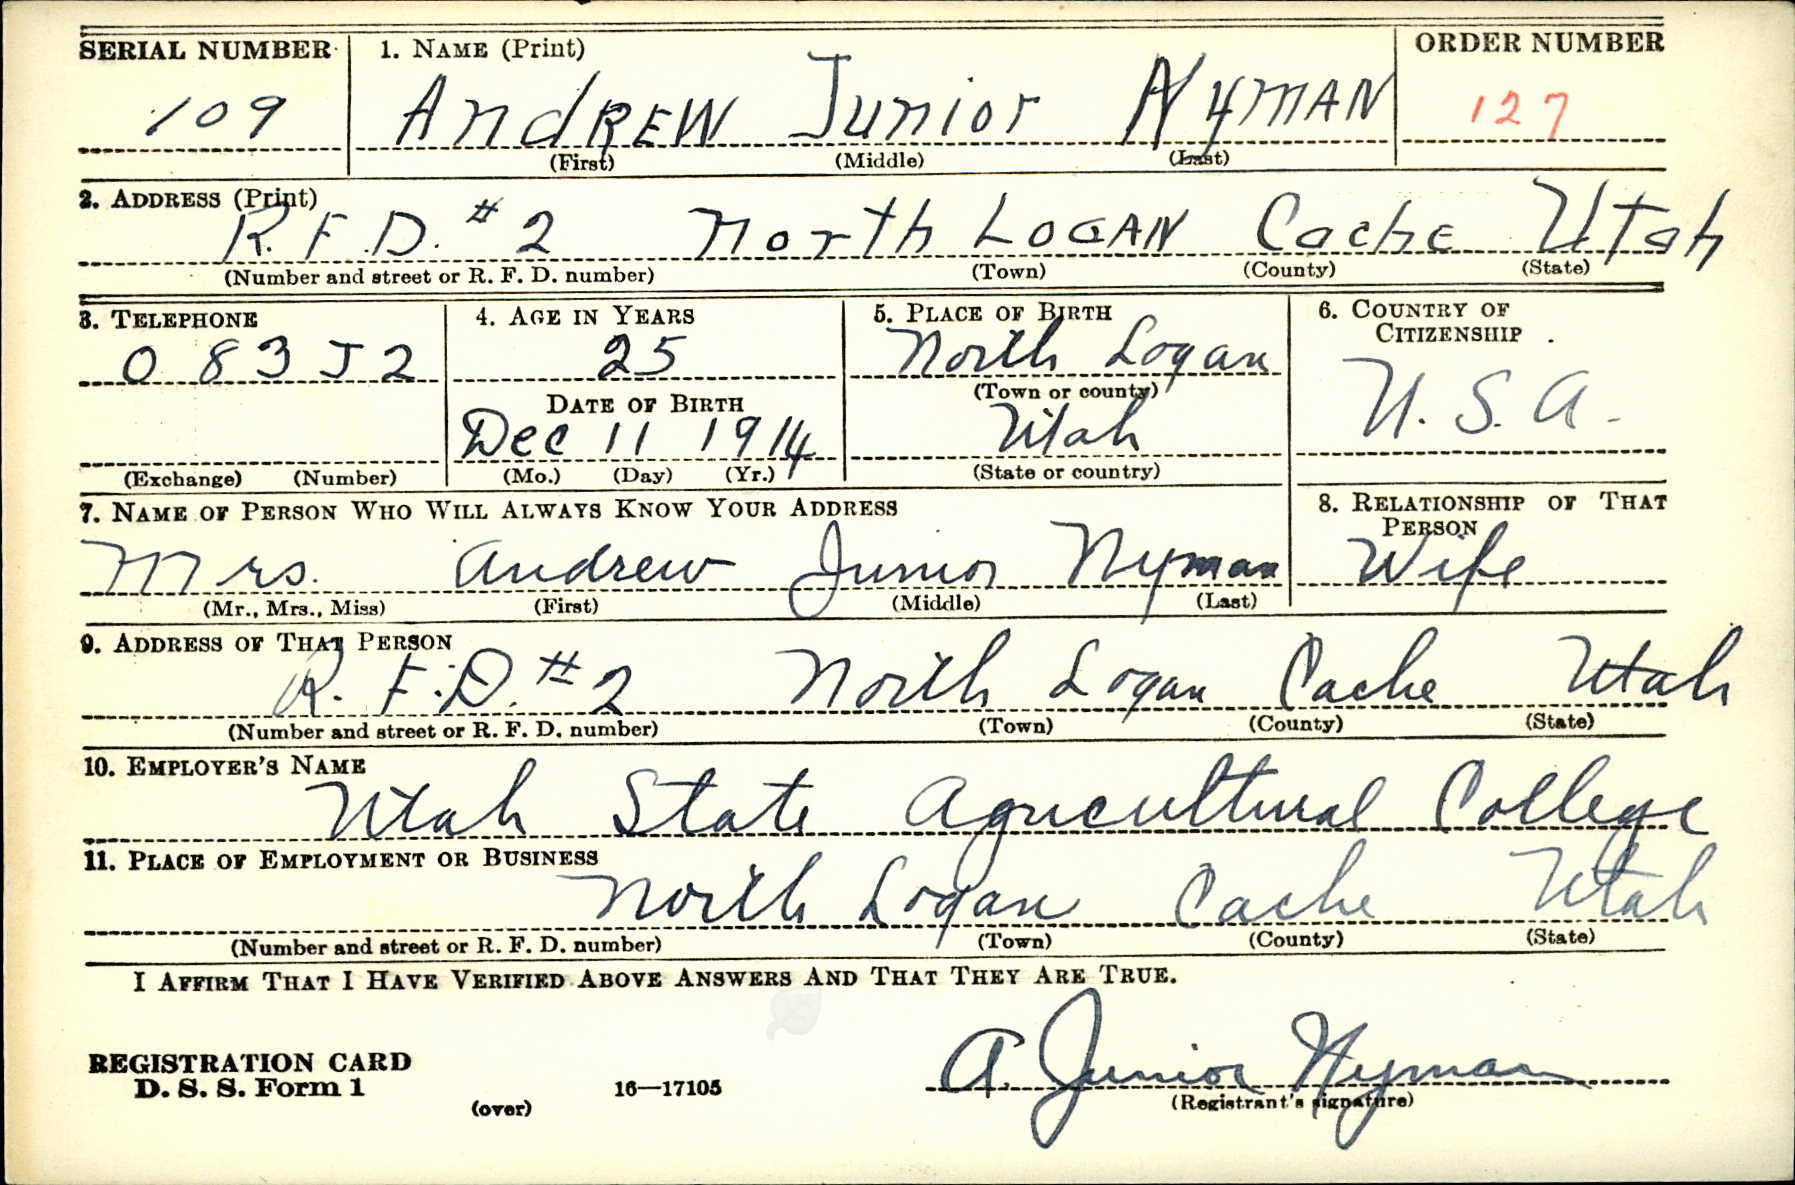 SERIAL NUMBER 1. NAME (Print) ORDER NUMBER
109 ANdREW Junior NyMAN 127
(First) (Middle) (Last)
2. ADDRESS (Print)
R.F.D. #2 North LOGAN Cache Utah
(Number and street or R. F. D. number) (Town) (County) (State)
3. TELEPHONE 4. AGE IN YEARS 5. PLACE OF BIRTH 6. COUNTRY OF CITIZENSHIP
0 83 J 2 25 North Logan
(Town or county)
DATE OF BIRTH U.S.A.
Dec 11 1914 Utah
(Exchange) (Number) (Mo.) (Day) (Yr.) (State or country)
7. NAME OF PERSON WHO WILL ALWAYS KNOW YOUR ADDRESS 8. RELATIONSHIP OF THAT PERSON
Mrs. Andrew Junior Nyman Wife
(Mr., Mrs., Miss) (First) (Middle) (Last)
9. ADDRESS OF THAT PERSON
R.F.D. #2 North Logan Cache Utah
(Number and street or R. F. D. number) (Town) (County) (State)
10. EMPLOYER'S NAME
Utah State Agricultural College
11. PLACE OF EMPLOYMENT OR BUSINESS
North Logan Cache Utah
(Number and street or R. F. D. number) (Town) (County) (State)
I AFFIRM THAT I HAVE VERIFIED ABOVE ANSWERS AND THAT THEY ARE TRUE.
REGISTRATION CARD
D. S. S. Form 1 16—17105 A. Junior Nyman
(over) (Registrant's signature)